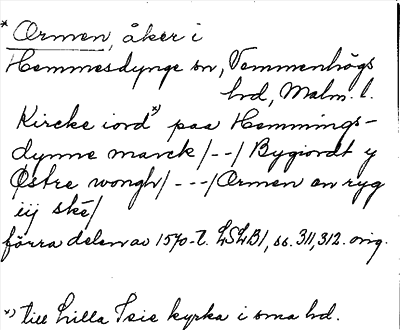 * Ormen, åker i
Hemmesdynge sn, Vemmenhögs
hd, Malm. l.
Kircke iord*) paa Hemmings-
dynne marck/--/ Bygiordt y
Østre wongh/---/Ormen en ryg
iij ske/
förra delen av 1570-t. LSLB1, ss. 311, 312. orig.
*) till Lilla Isie kyrka i sma hd.